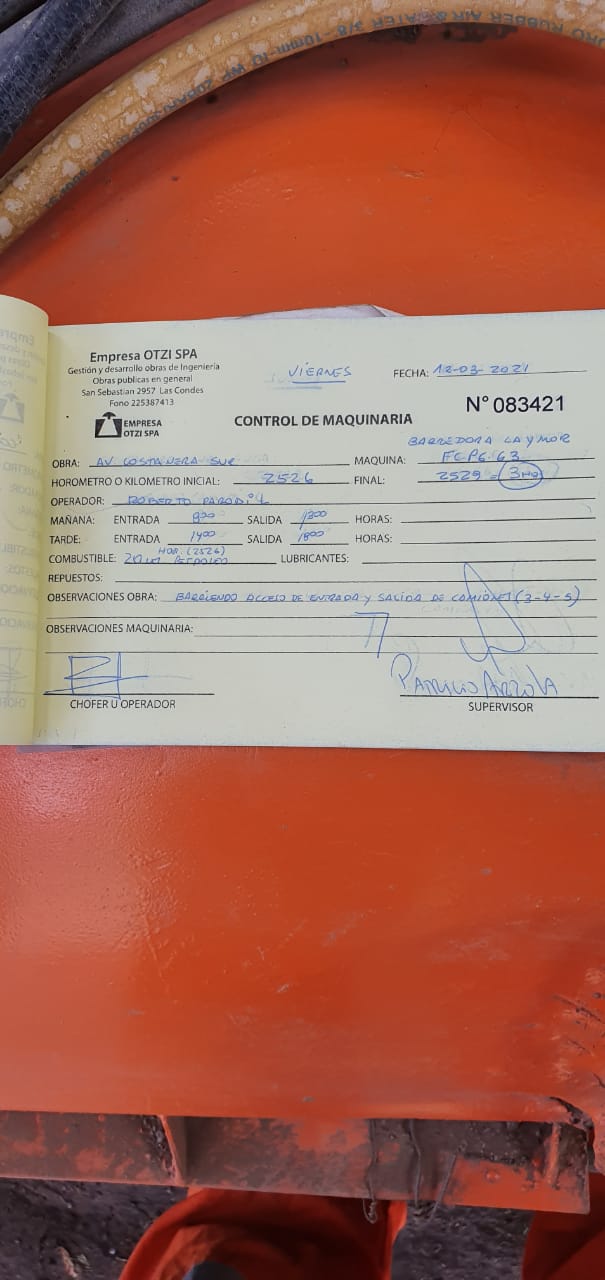 Empresa OTZI SPA
Gestión y desarrollo obras de Ingeniería
Obras publicas en general
San Sebastian 2957 Las Condes
Fono 225387413
EMPRESA
OTZI SPA
VIERNES
FECHA: 12-03-2021
N° 083421
CONTROL DE MAQUINARIA
BARREDORA LAYMOR
OBRA: AV COSTANERA SUR MAQUINA: FCPG 63
HOROMETRO O KILOMETRO INICIAL: 2526 FINAL: 2529 = 3HR
OPERADOR: ROBERTO
MAÑANA: ENTRADA 800 SALIDA 1300 HORAS:
TARDE: ENTRADA 1400 SALIDA 1800 HORAS:
HOR. (2526)
COMBUSTIBLE: PETROLEO LUBRICANTES:
REPUESTOS:
OBSERVACIONES OBRA: BARRIENDO ACCESO DE ENTRADA Y SALIDA DE CAMIONES (3-4-5)
OBSERVACIONES MAQUINARIA:
PATRICIO
CHOFER U OPERADOR
SUPERVISOR